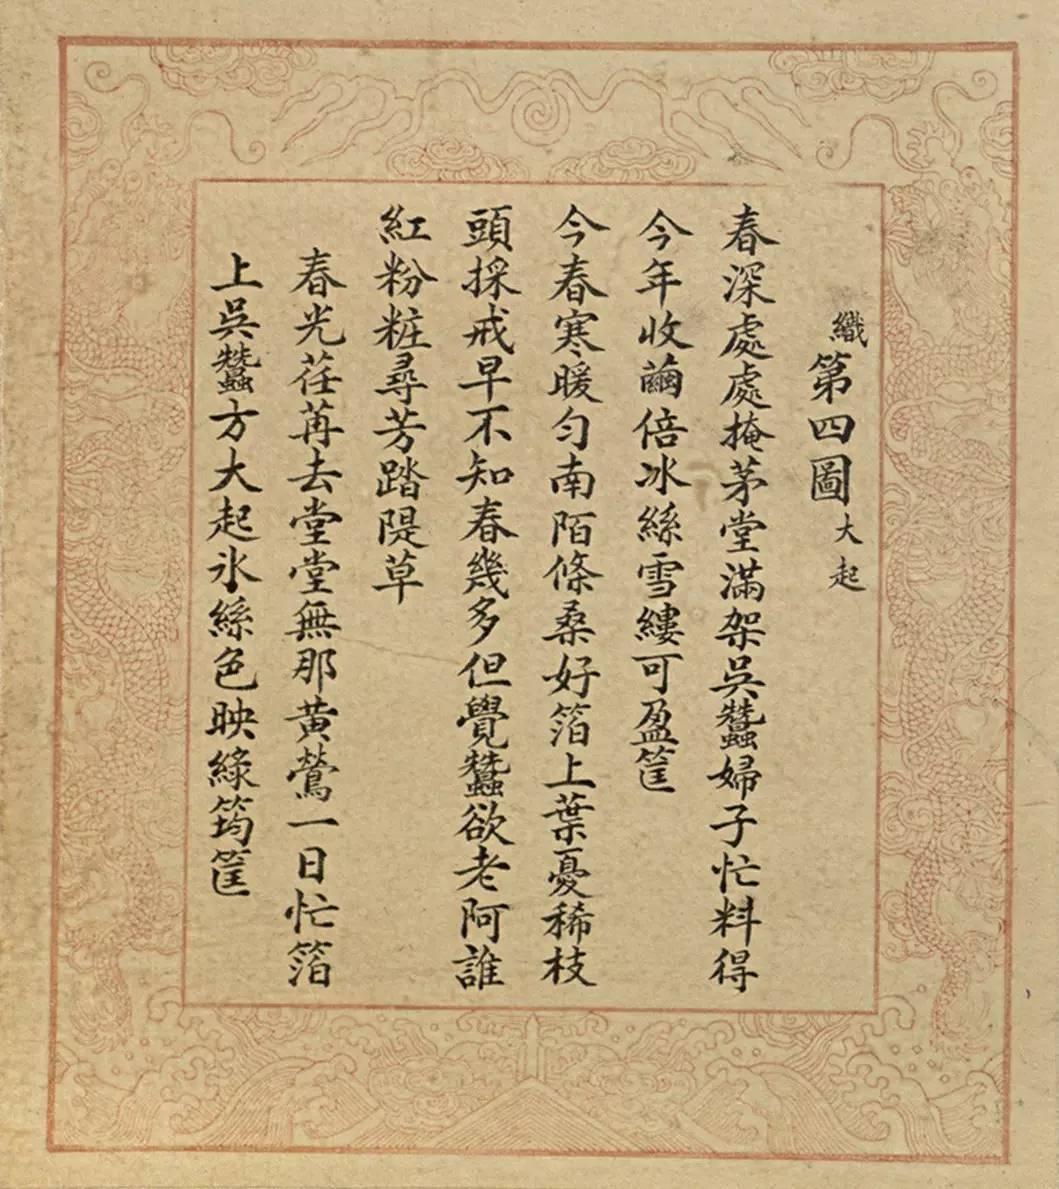 織第四圖大起
春深處處掩茅堂滿架吳蠶婦子忙料得
今年收繭倍冰絲雪縷可盈筐
今春寒暖勻南陌條桑好箔上葉憂稀枝
頭採戒早不知春幾多但覺蠶欲老阿誰
紅粉粧尋芳踏隄草
春光荏苒去堂堂無那黄鶯一日忙箔
上吳蠶方大起氷絲色映綠筠筐